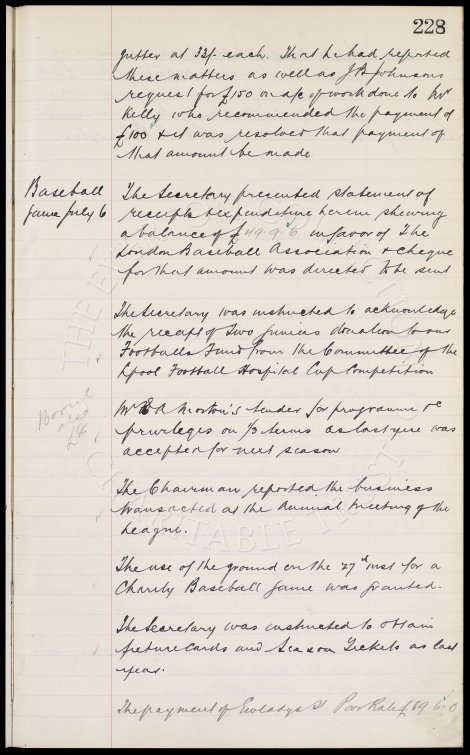 228
gutter at 33/- each. That he had reported
these matters as well as J B Johnsons
request for £150 on a/c of work done to Mr
Kelly who recommended the payment of
£100 & it was resolved that payment of
that amount be made
Baseball
Game July 6
The Secretary presented statement of
receipts & expenditure herein shewing
a balance of £49.9.6 in favor of The
London Baseball Association & cheque
for that amount was directed to be sent
The Secretary was instructed to acknowledge
the receipt of Two Guineas donation to our
Footballs Fund from the Committee of the
Lpool Football Hospital Cup Competition
£8
Mr A Morton's tender for programme &c
privileges on 1/3 terms as last year was
accepted for next season
The Chairman reported the business
transacted at the Annual Meeting of the
League.
The use of the ground on the 27th inst for a
Charity Baseball Game was granted.
The Secretary was instructed to obtain
fixture cards and Season Tickets as last
year.
The payment of Gwladys St Poor Rate £69.6.0